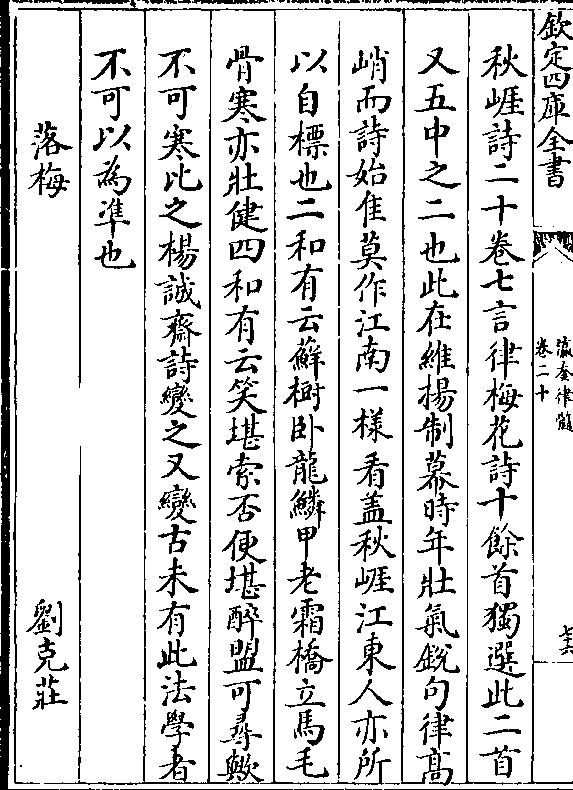 欽定四庫全書
瀛奎律髓
卷二十
秋崕詩二十卷七言律梅花詩十餘首獨選此二首
又五中之二也此在維楊制幕時年壯氣銳句律髙
峭而詩始隹莫作江南一樣看盖秋崕江東人亦所
以自標也二和有云蘚樹卧龍鱗甲老霜橋立馬毛
骨寒亦壯健四和有云笑堪索否便堪醉盟可尋歟
不可寒比之楊誠齋詩變之又變古未有此法學者
不可以為凖也
落梅　劉克莊